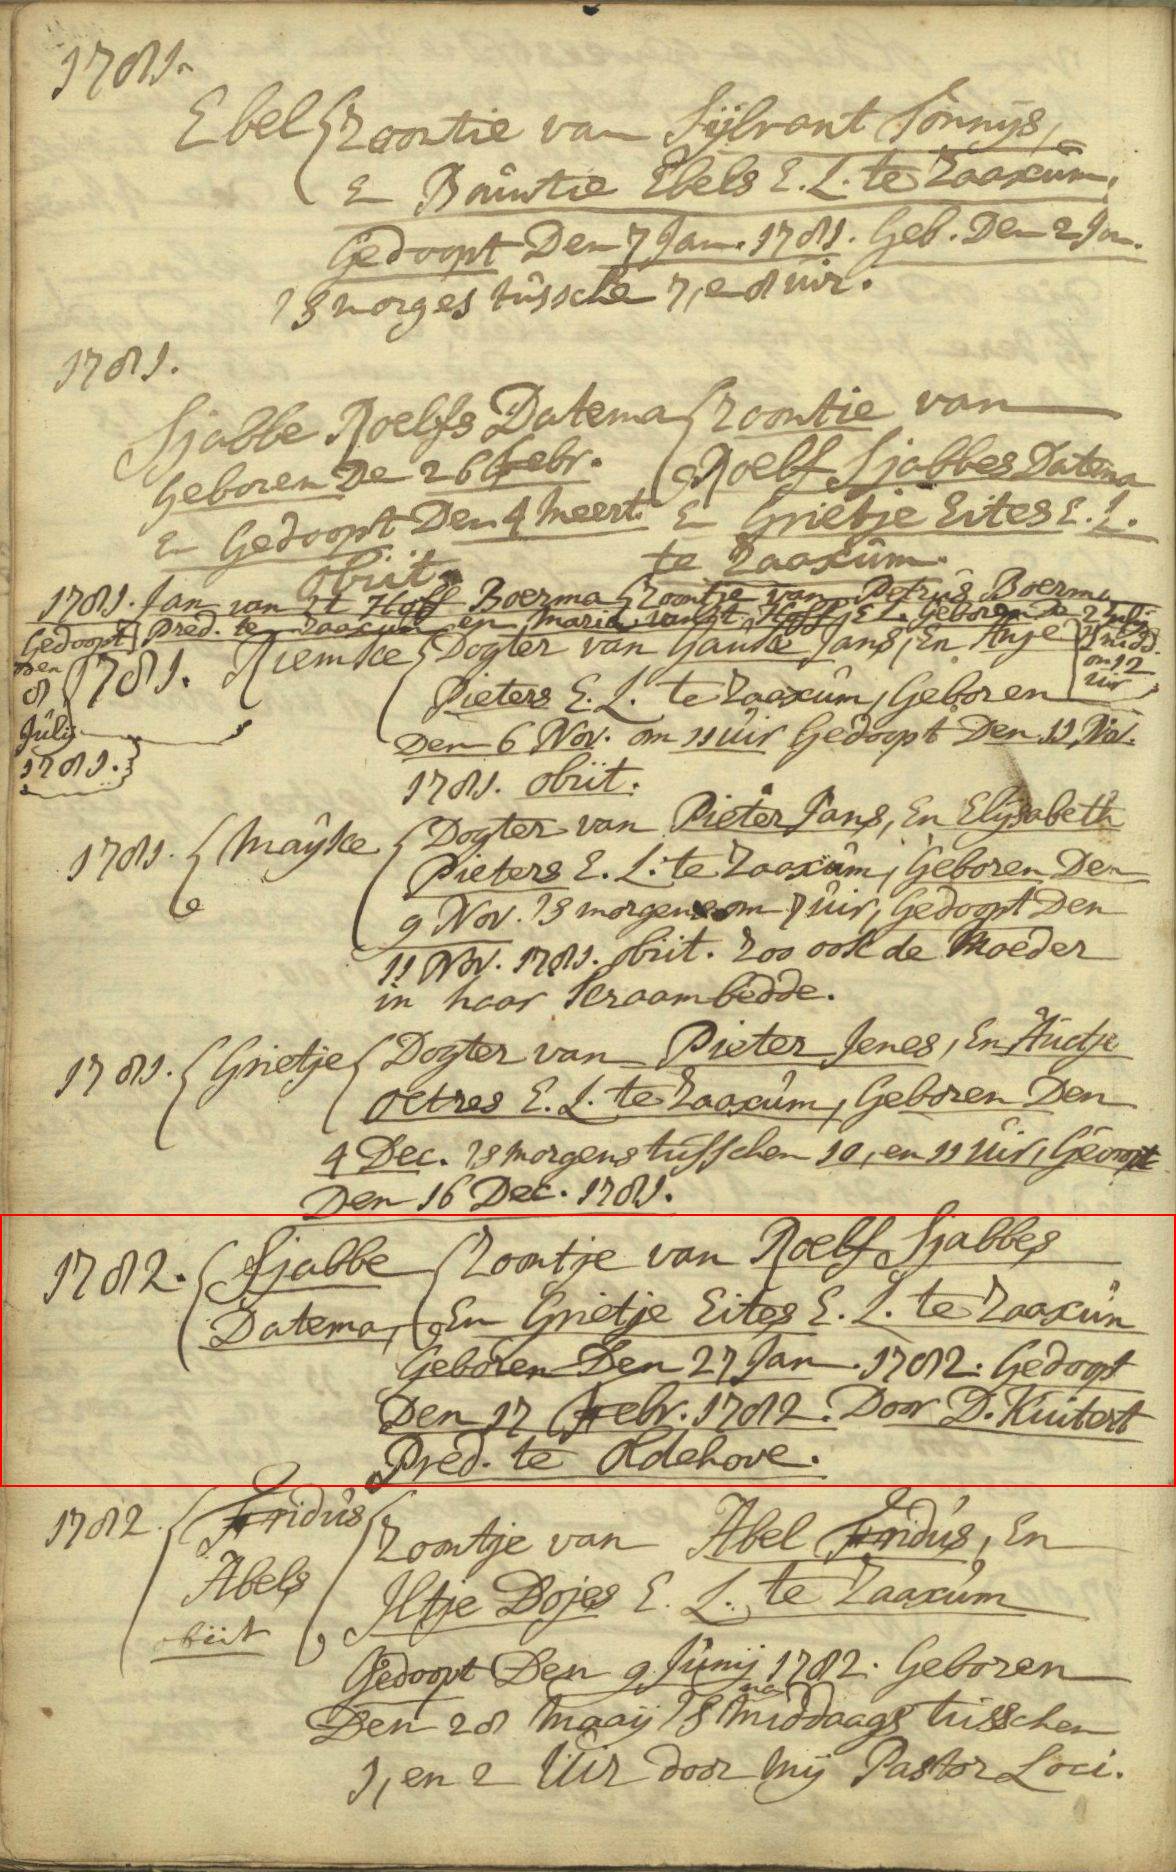 1781.
Ebel { Zoontie van Sijbrant Sonnijs,
En Bauwtie Ebels E. L. te Zaaxum,
Gedoopt Den 7 Jan. 1781. Geb. Den 2 Jan.
's morges tussche 7, e 8 uir.
1781.
Sjabbe Roelfs Datema { Zoontie van
Geboren De 26 Febr. Roelf Sjabbes Datema
En Gedoopt Den 4 Meert. En Grietje Eites E. L.
obiit. te Zaaxum.
1781. Jan van 't Hoff Boerma { Zoontje van Petrus Boerma
Pred. te Zaaxum en Maria van 't Hoff E L. Geboren de 2 Julij
's midd. om 12 uir
Gedoopt Den 8 Julij 1781.
1781. Riemke { Dogter van Hauke Jans, En Anje
Pieters E. L. te Zaaxum, Geboren
Den 6 Nov. om 11 uir Gedoopt Den 11 Nov.
1781. obiit.
1781. { Mayke { Dogter van Pieter Jans, En Elysabeth
Pieters E. L. te Zaaxum, Geboren Den
9 Nov. 's morgens om 7 uir, Gedoopt Den
11 Nov. 1781. obiit. Zoo ook de Moeder
in haar Kraambedde.
1781. { Grietje { Dogter van Pieter Jenes, En Audje
Oetres E. L. te Zaaxum, Geboren Den
4 Dec. 's morgens tusschen 10, en 11 Uir, Gedoopt
Den 16 Dec. 1781.
1782. { Sjabbe { Zoontje van Roelf Sjabbes
Datema, En Grietje Eites E. L. te Zaaxum
Geboren Den 27 Jan. 1782. Gedoopt
Den 17 Febr. 1782. Door D. Kuitert
Pred. te Oldehove.
1782. { Fridus { Zoontje van Abel Fridus, En
Abels Iltje Dojes E. L. te Zaaxum
obiit
Gedoopt Den 9 Junij 1782. Geboren
Den 28 Maaij 's namiddaags tusschen
1, en 2 Uir door mij Pastor Loci.